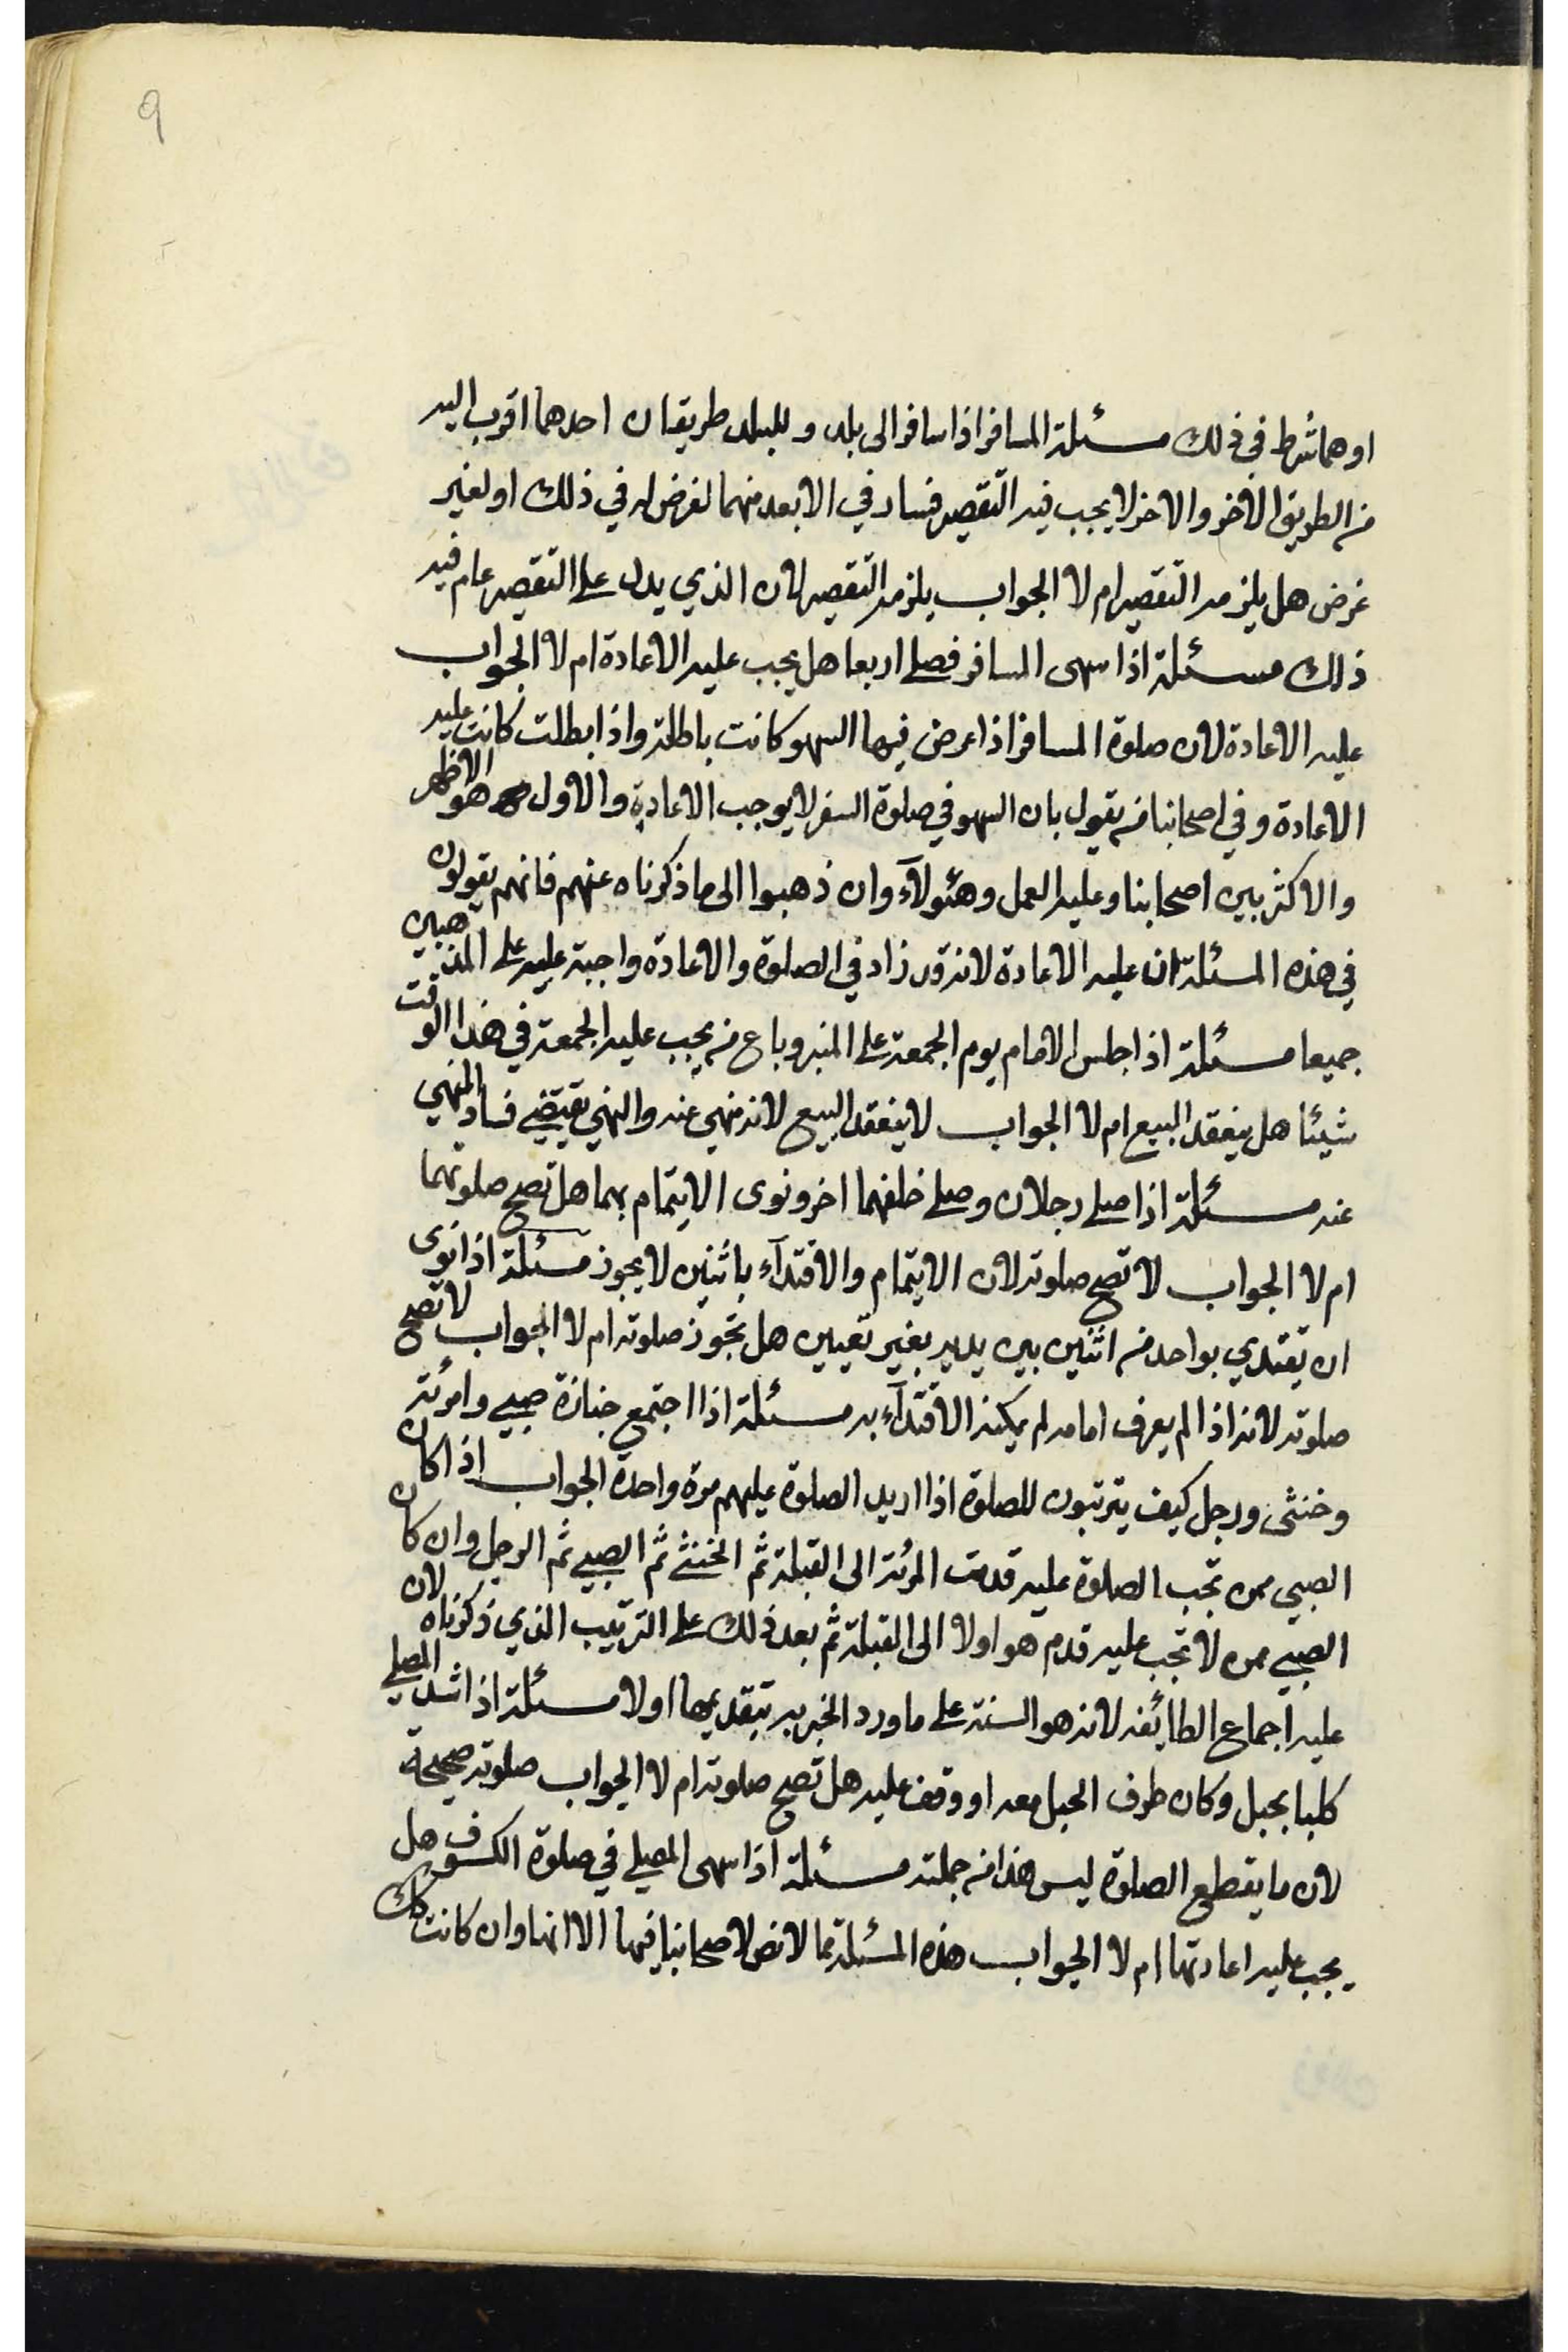 ٩
او هما شرط في ذلك مسئلة المسافر اذا سافر الى بلد و للبلد طريقان احدهما اقرب اليه
من الطريق الآخر والاخر لا يجب فيه التقصير فسار في الابعد منهما لغرض له في ذلك او لغير
غرض هل يلزمه التقصير ام لا الجواب يلزمه التقصير لان الذي يدل على التقصير عام فيه
ذلك مسئلة اذا سهى المسافر فصلى اربعا هل يجب عليه الاعادة ام لا الجواب
عليه الاعادة لان صلوة المسافر اذا عرض فيها السهو كانت باطلة واذا بطلت كانت عليه
الاعادة و في اصحابنا من يقول بان السهو في صلوة السفر لا يوجب الاعادة والاول هو الاظهر
والاكثر بين اصحابنا وعليه العمل وهئولآء وان ذهبوا الى ما ذكرناه عنهم فانهم يقولون
في هذه المسئلة ان عليه الاعادة لانه قد زاد في الصلوة والاعادة واجبة عليه على المذهبين
جميعا مسئلة اذا جلس الامام يوم الجمعة على المنبر وباع من يجب عليه الجمعة في هذا الوقت
شيئا هل ينعقد البيع ام لا الجواب لا ينعقد البيع لانه منهي عنه والنهي يقتضي فساد المنهي
عنه مسئلة اذا صلى رجلان وصلى خلفهما اخر ونوى الايتمام بهما هل تصح صلوتهما
ام لا الجواب لا تصح صلوته لان الايتمام والاقتدآء باثنين لا يجوز مسئلة اذا نوى
ان يقتدي بواحد من اثنين بين يديه بغير تعيين هل تجوز صلوته ام لا الجواب لا تصح
صلوته لانه اذا لم يعرف امامه لم يمكنه الاقتدآء به مسئلة اذا اجتمع جنازة صبي وامرئة
وخنثى ورجل كيف يترتبون للصلوة اذا اريد الصلوة عليهم مرة واحدة الجواب اذا كان
الصبي ممن تجب الصلوة عليه قدمت المرئة الى القبلة ثم الخنثى ثم الصبي ثم الرجل وان كان
الصبي ممن لا تجب عليه قدم هو اولا الى القبلة ثم بعد ذلك على الترتيب الذي ذكرناه لان
عليه اجماع الطائفه لانه هو السنة على ما ورد الخبر به بتقديمها اولا مسئلة اذا شد المصلي
كلبا بحبل وكان طرف الحبل معه او وقف عليه هل تصح صلوته ام لا الجواب صلوته صحيحة
لان ما يقطع الصلوة ليس هذا من جملته مسئلة اذا سهى المصلي في صلوة الكسوف هل
يجب عليه اعادتها ام لا الجواب هذه المسئلة مما لا نص لاصحابنا فيها الا انها وان كانت كك